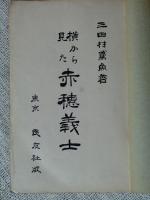 三田村鳶魚著
横から見た赤穂義士
東京 民友社版